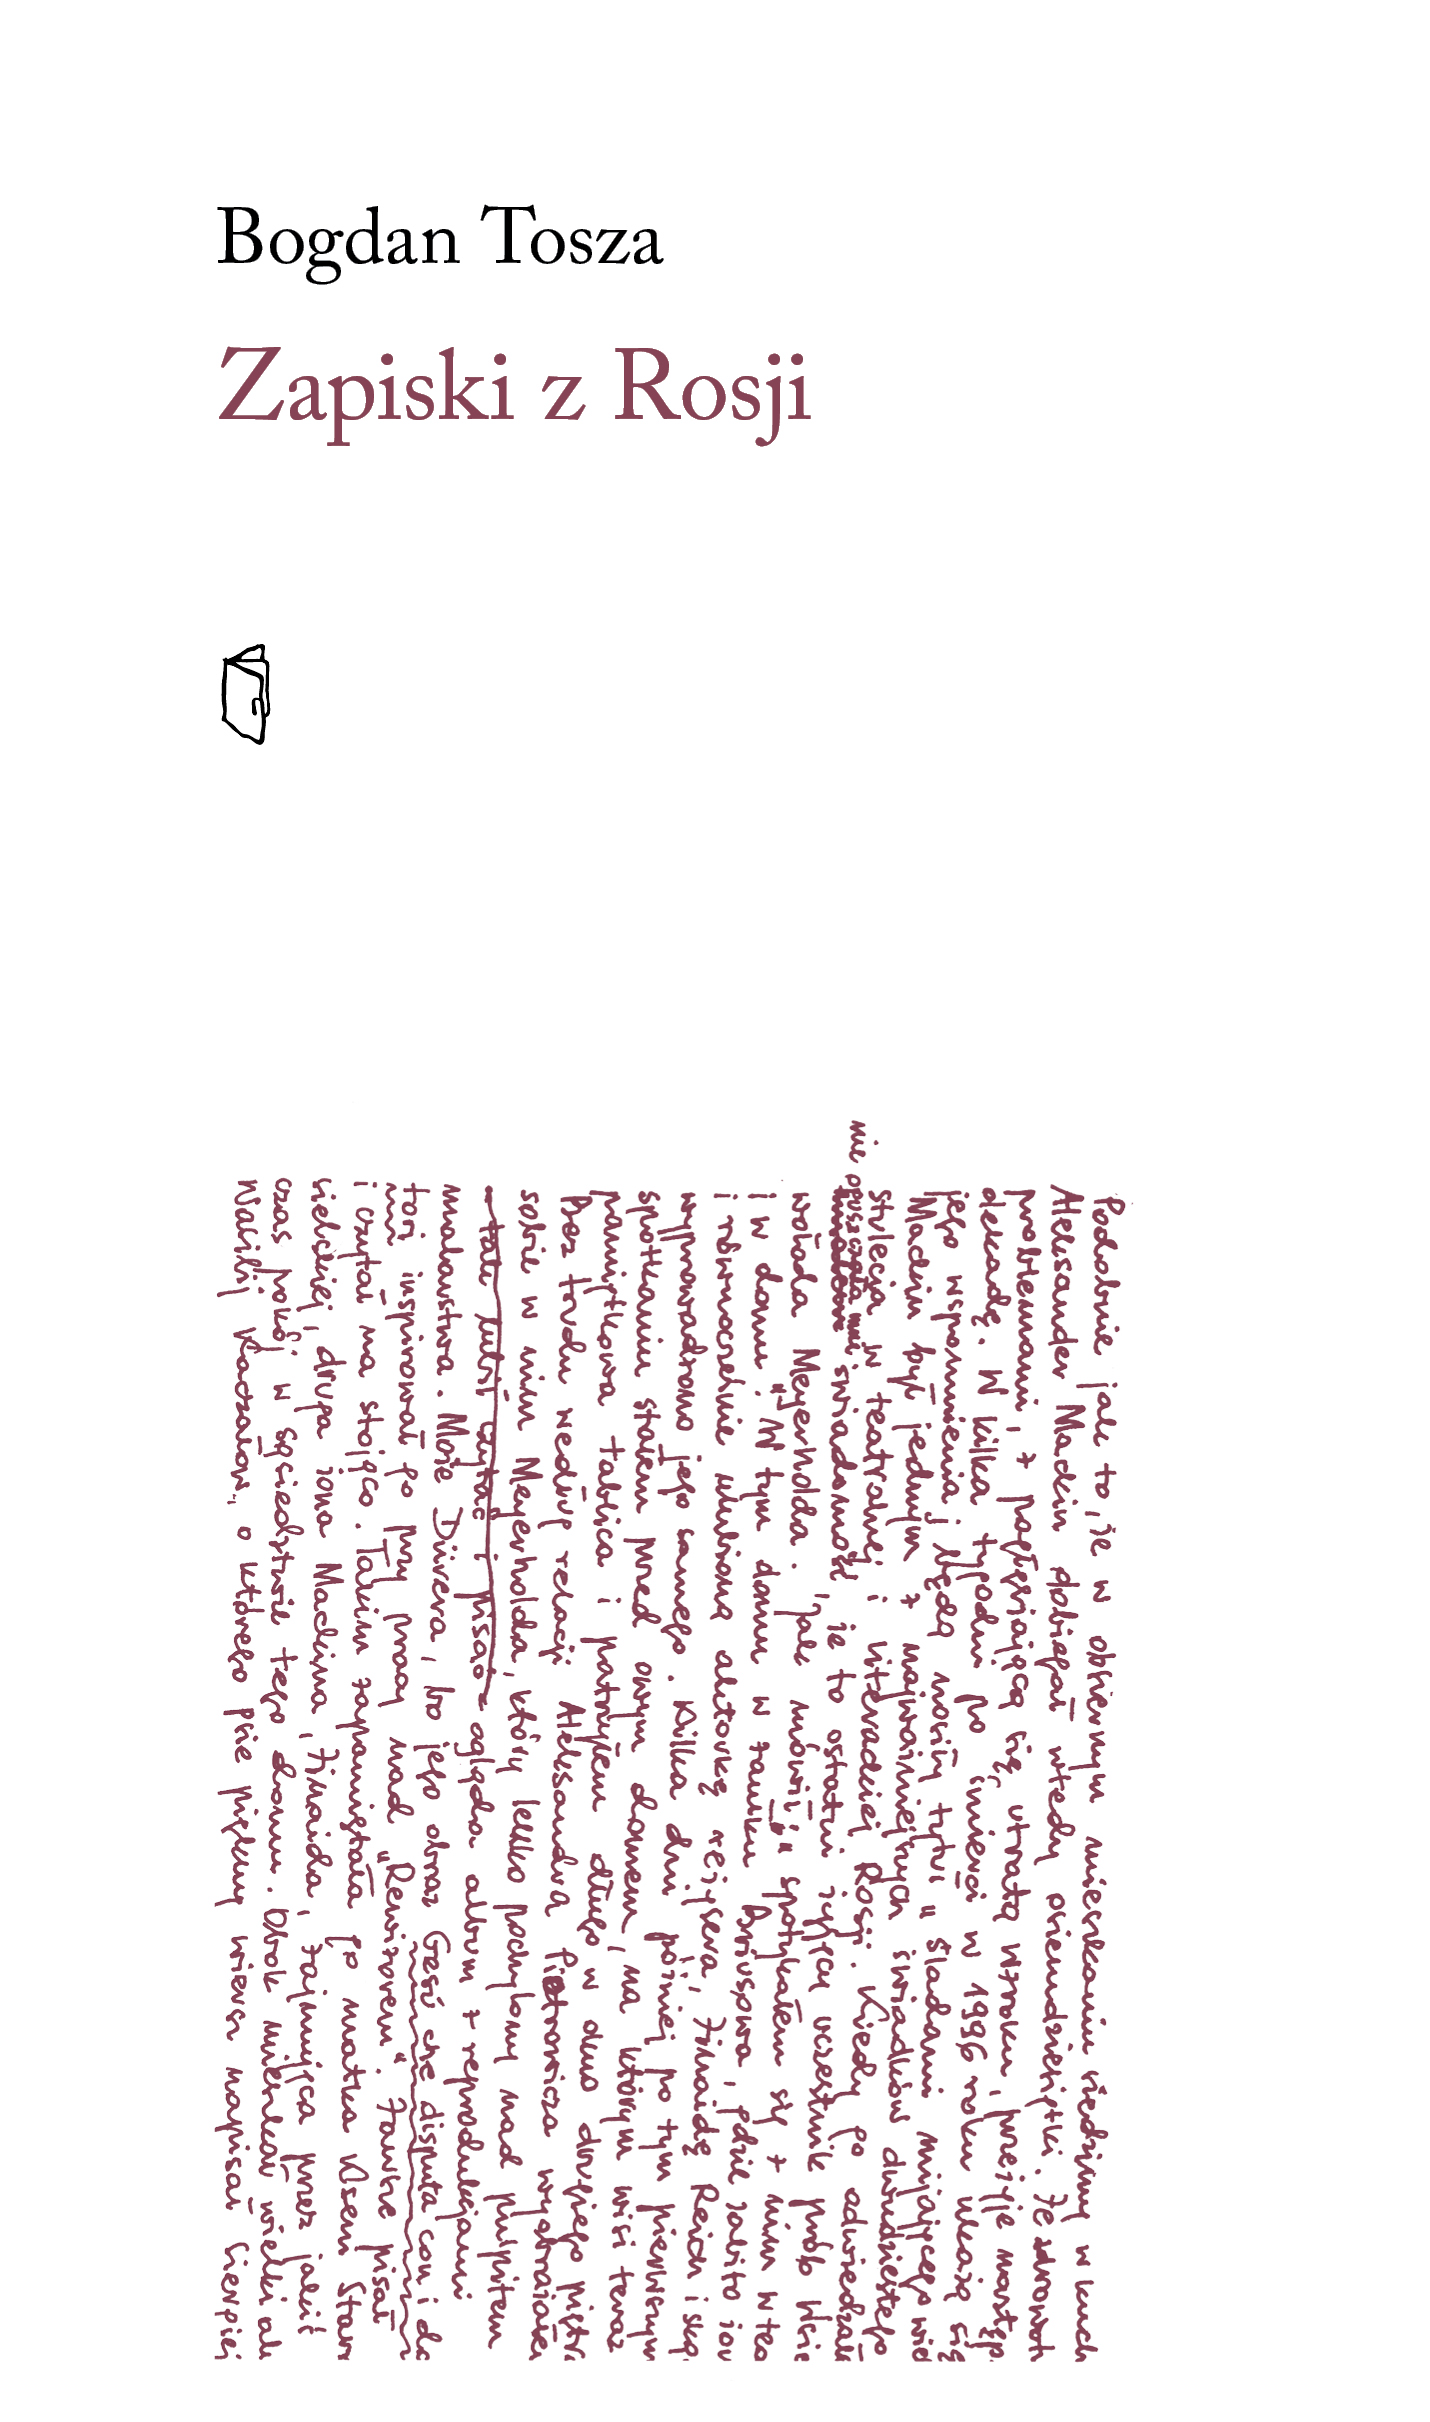 Bogdan Tosza
Zapiski z Rosji
Podobnie jak to, że w obszernym mieszkaniu siedzimy w kuch
Aleksander Mackin dobiegał wtedy osiemdziesiątki. Ze zdrowot
problemami, z pogłębiającą się utratą wzroku, przeżyje następ
dekadę. W kilka tygodni po śmierci w 1996 roku ukażą się
jego wspomnienia i będą nosiły tytuł „Śladami mijającego wie
Mackin był jednym z najważniejszych świadków dwudziestego
stulecia w teatralnej i literackiej Rosji. Kiedy go odwiedzał
nie opuszczała mnie świadomość, że to ostatni żyjący uczestnik prób Wsie
wołoda Meyerholda. Jak mówił: „spotykałem się z nim w tea
i w domu”. W tym domu w zaułku Briusowa, gdzie zabito żon
i równocześnie ulubioną aktorkę reżysera, Zinaidę Reich i ską
wyprowadzono jego samego. Kilka dni później po tym pierwszym
spotkaniu stałem przed owym domem, na którym wisi teraz
pamiątkowa tablica i patrzyłem długo w okno drugiego piętr
Bez trudu według relacji Aleksandra Pietrowicza wyobraziłem
sobie w nim Meyerholda, który lekko pochylony nad pulpitem
– tak lubił czytać i pisać – ogląda album z reprodukcjami
malarstwa. Może Dürera, bo jego obraz Gesù che disputa con i do
tori inspirował go przy pracy nad „Rewizorem”. Zawsze pisał
i czytał na stojąco. Takim zapamiętała go matka Kseni Stan
sielskiej, druga żona Mackina, Zinaida, zajmująca przez jakiś
czas pokój w sąsiedztwie tego domu. Obok mieszkał wielki ak
Wasilij Kaczałow, o którego psie piękny wiersz napisał Siergiej